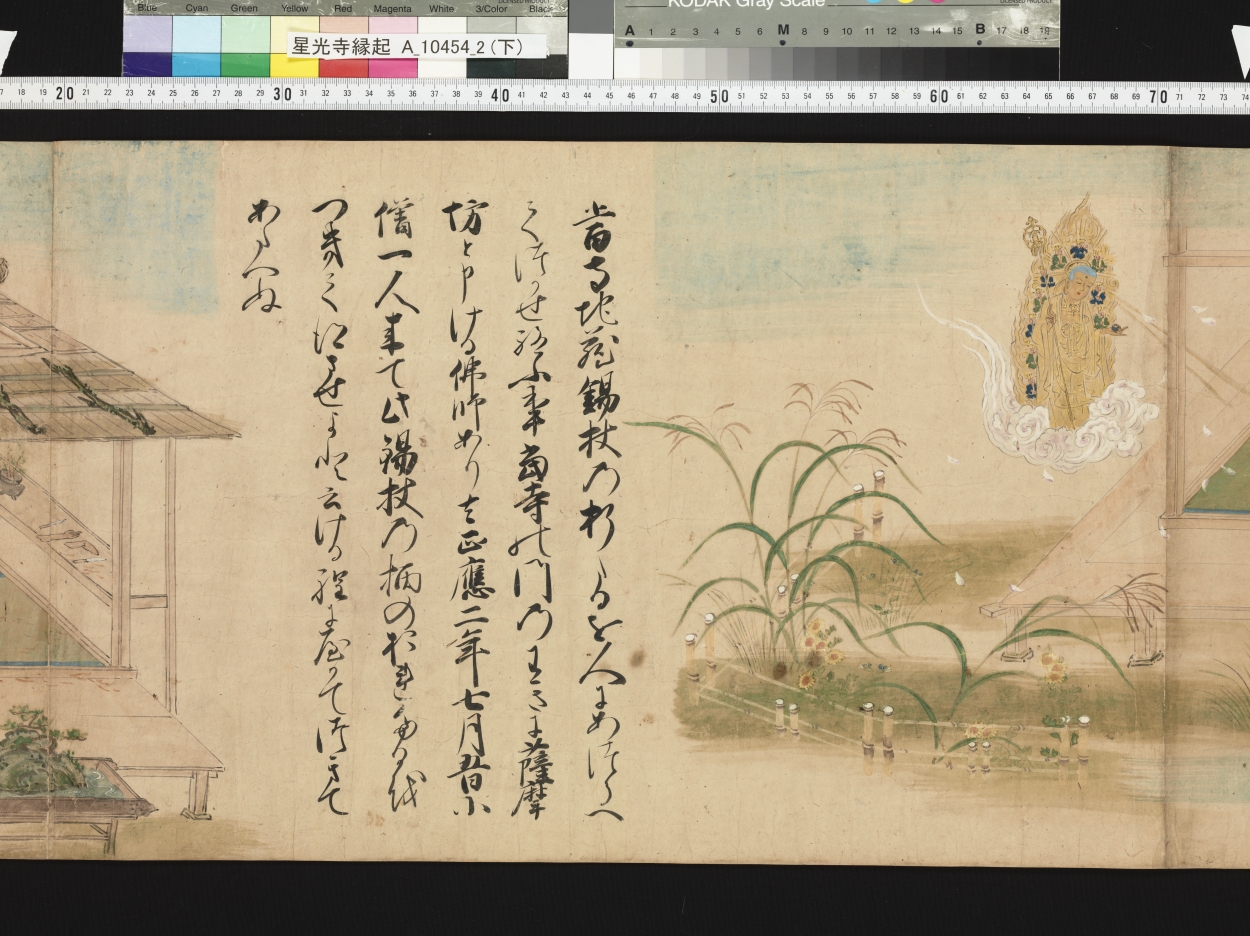 Blue Cyan Green Yellow Red Magenta White 3/Color Black
星光寺縁起 A_10454_2（下）
KODAK Gray Scale
LICENSED PRODUCT
A 1 2 3 4 5 6 M 8 9 10 11 12 13 14 15 B 17 18 19
17 18 19 20 21 22 23 24 25 26 27 28 29 30 31 32 33 34 35 36 37 38 39 40 41 42 43 44 45 46 47 48 49 50 51 52 53 54 55 56 57 58 59 60 61 62 63 64 65 66 67 68 69 70 71 72 73 74
地蔵錫杖の折たるを人にあつらへ
てつけさせ給ふ事当寺の門のまへに薩摩
坊と申ける佛師あり去正應二年七月廿日に
僧一人来て此錫杖の柄のおれたるを
つきてえさせよと云ける程に
あたへぬ